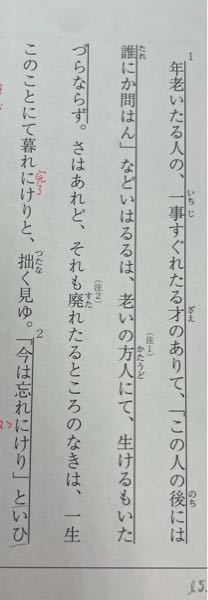 1
年老いたる人の、一事すぐれたる才のありて、「この人の後には
いちじ
ざえ
のち
誰にか問はん」などいはるるは、老いの方人にて、生けるもいた
たれ
(注1)
かたうど
づらならず。さはあれど、それも廃れたるところのなきは、一生
(注2)
すた
このことにて暮れにけりと、拙く見ゆ。「今は忘れにけり」といひ
完了
つたな
2